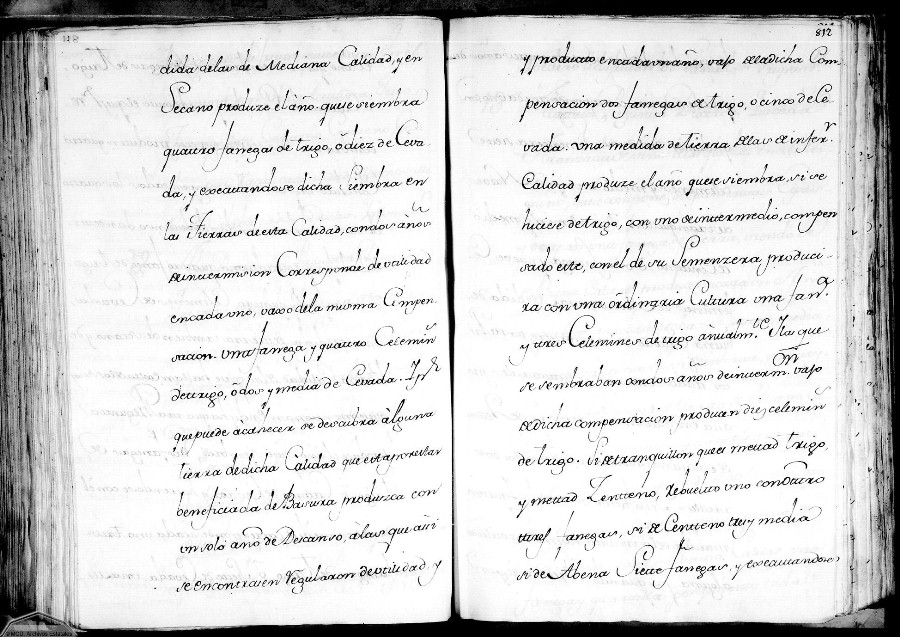 dida delas de Mediana Calidad, y en
Secano produze el año que se siembra
quattro fanegas de trigo, ô diez de Ceva
da, y executandose dicha Siembra en
las Tierras de esta Calidad, con dos años
de intermision Corresponde de utilidad
en cada uno, vajo de la misma Compen
sacion una fanega y quattro Celemins
de trigo, ô dos y media de Cevada. Y pr
que puede âcahecer se descubra âlguna
tierra de dicha Calidad que esta por estar
beneficiada de Basura produzca con
un solo año de Descanso, âlas que asi
se encontrasen Regularon de utilidad y
812
y producto en cada un año, vajo de la dicha Com
pensacion dos fanegas de trigo, o cinco de Ce
vada. Una medida de tierra de las de infer.r
Calidad produze el año que se siembra, si se
hiciese de trigo, con uno de intermedio, compen
sado este, con el de su Semenzera, produci
ra con una ôrdinaria Cultura una fan.a
y tres Celemines de trigo anualm.te Las que
se sembraban con dos años de interm.on vajo
de dicha compensacion producen diez celemins
de trigo. Si de tranquillon que es mettad trigo,
y mettad Zentteno, Rebuelto uno con ôttro
ttres fanegas, si de Centteno tres y media
si de Abena Siette fanegas, y executandose
©MCD. Archivos Estatales